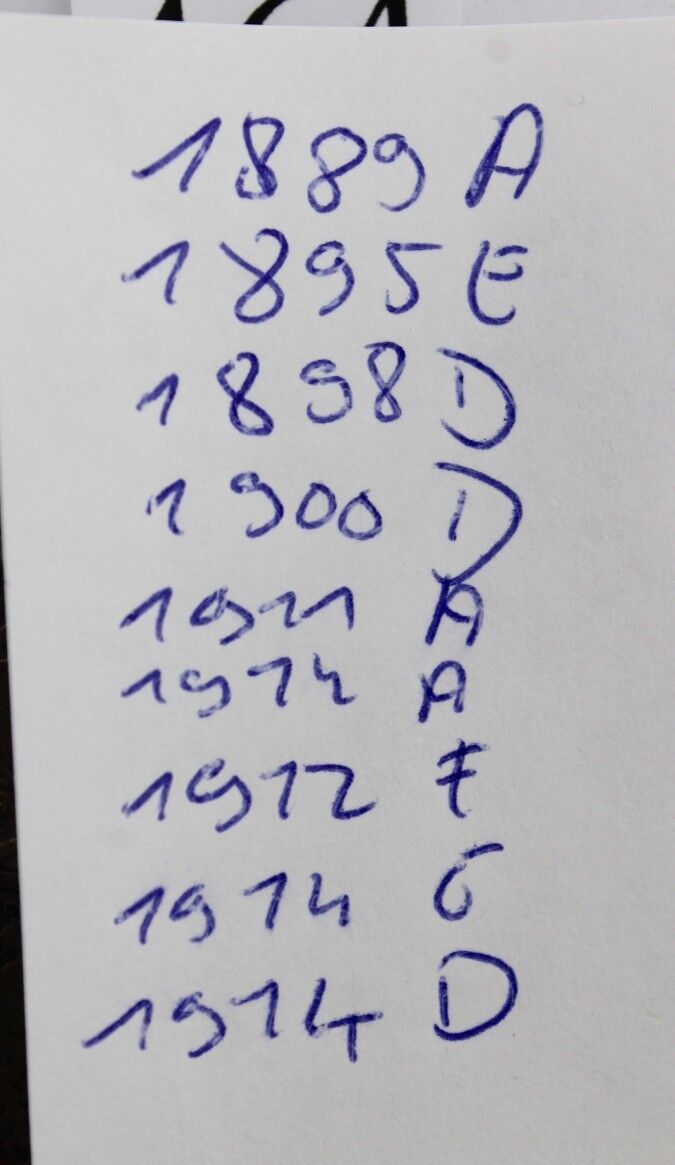 1889 A
1895 E
1898 D
1900 D
1911 A
1914 A
1912 F
1914 G
1914 D